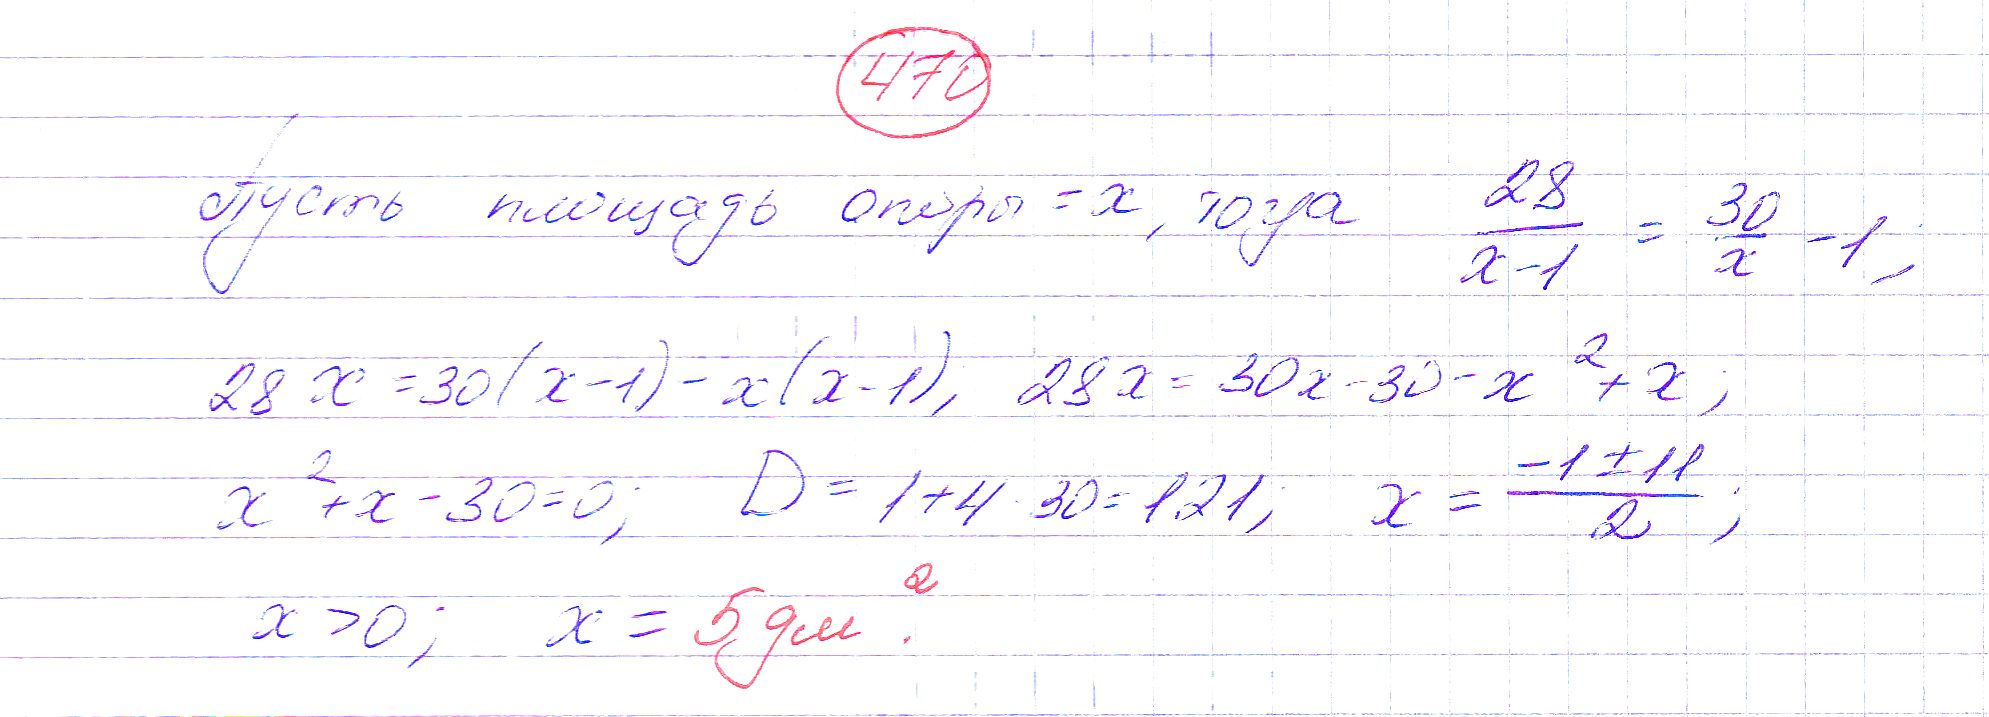 470
Пусть площадь опоры = x, тогда 28/(x-1) = 30/x - 1;
28x = 30(x-1) - x(x-1); 28x = 30x - 30 - x² + x;
x² + x - 30 = 0; D = 1 + 4·30 = 121; x = (-1 ± 11)/2;
x > 0; x = 5 дм².